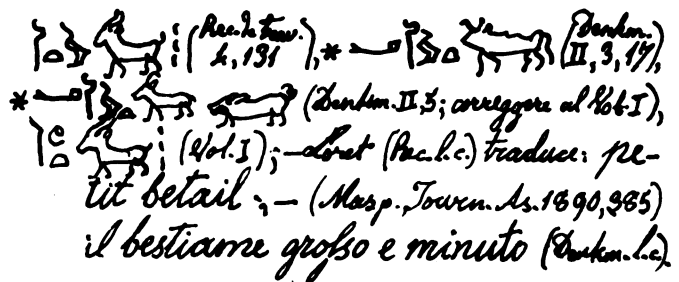 (Rec. de trav. 4, 131), * (Denkm. II, 3, 17),
* (Denkm. II, 5; correggere al Vol. I),
(Vol. I); — Loret (Rec. l. c.) traduce: pe-
tit betail; — (Masp. Journ. As. 1890, 385)
il bestiame grosso e minuto (Denkm. l. c.).